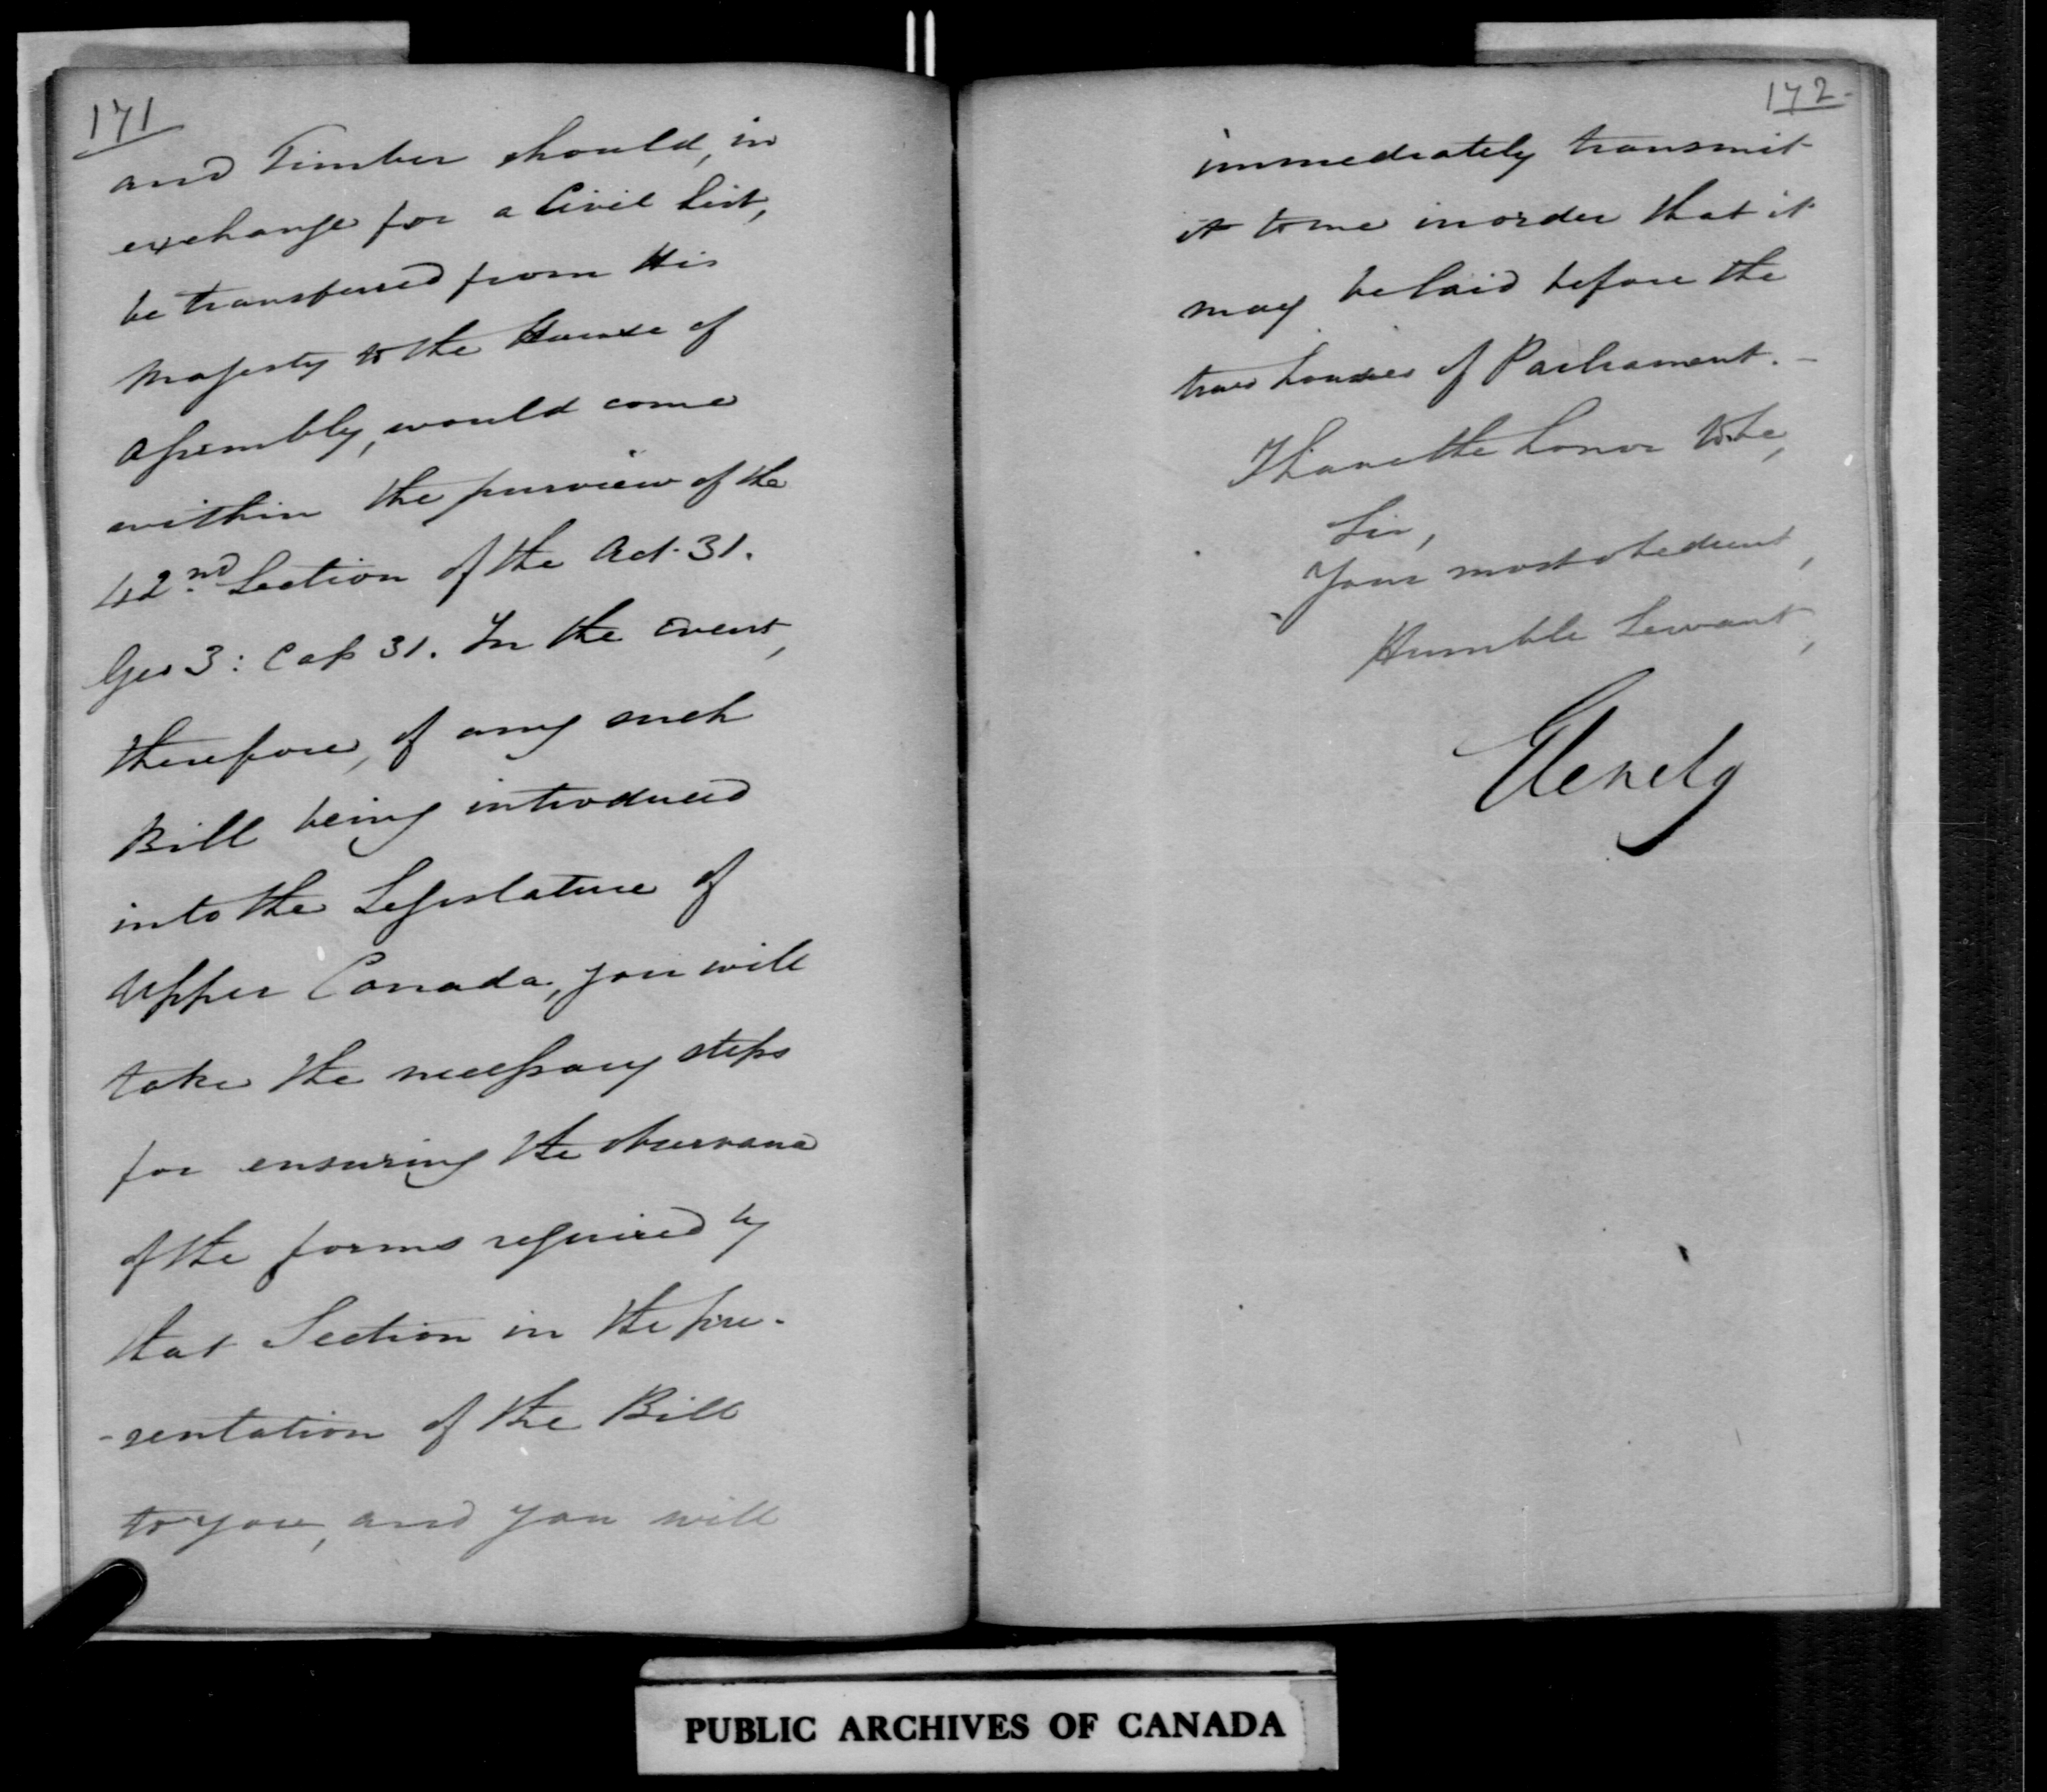 171
and Timber should, in
exchange for a Civil List,
be transferred from His
Majesty to the House of
Assembly, would come
within the purview of the
42nd Section of the Act. 31.
Geo 3: Cap 31. In the event,
therefore, of any such
Bill being introduced
into the Legislature of
Upper Canada, you will
take the necessary steps
for ensuring the observance
of the forms required by
that Section in the pre-
-sentation of the Bill
to you, and you will
172-
immediately transmit
it to me in order that it
may be laid before the
two houses of Parliament. -
I have the honor to be,
Sir,
Your most obedient,
Humble Servant,
Glenelg
PUBLIC ARCHIVES OF CANADA